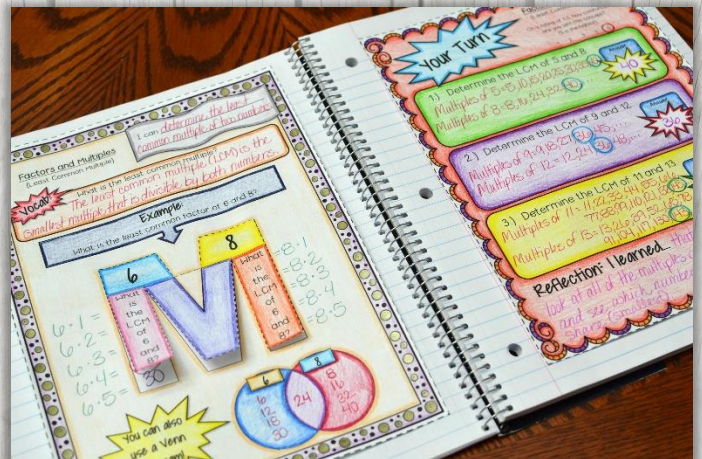 I can determine the least
common multiple of two numbers.
Factors and Multiples
(Least Common Multiple)
Vocab:
What is the least common multiple?
The least common multiple (LCM) is the
smallest multiple that is divisible by both numbers.
Example:
What is the least common factor of 6 and 8?
6
8
What
is
the
LCM
of
6
and
8?
30
What
is
the
LCM
of
6
and
8?
6·1=
6·2=
6·3=
6·4=
6·5=
=8·1
=8·2
=8·3
=8·4
=8·5
6
8
6
12
18
30
24
8
16
32
40
You can also
use a Venn
Your Turn
1.) Determine the LCM of 5 and 8
Multiples of 5=5,10,15,20,25,30,35
Multiples of 8=8,16,24,32,40
Answer
40
2.) Determine the LCM of 9 and 12
Multiples of 9=9,18,27,36,45,...
Multiples of 12=12,24,36,48,...
Answer
36
3.) Determine the LCM of 11 and 13
Multiples of 11=11,22,33,44,55,
Multiples of 13=13,26,39,52,
Reflection: I learned... that
look at all of the multiples
and see which number